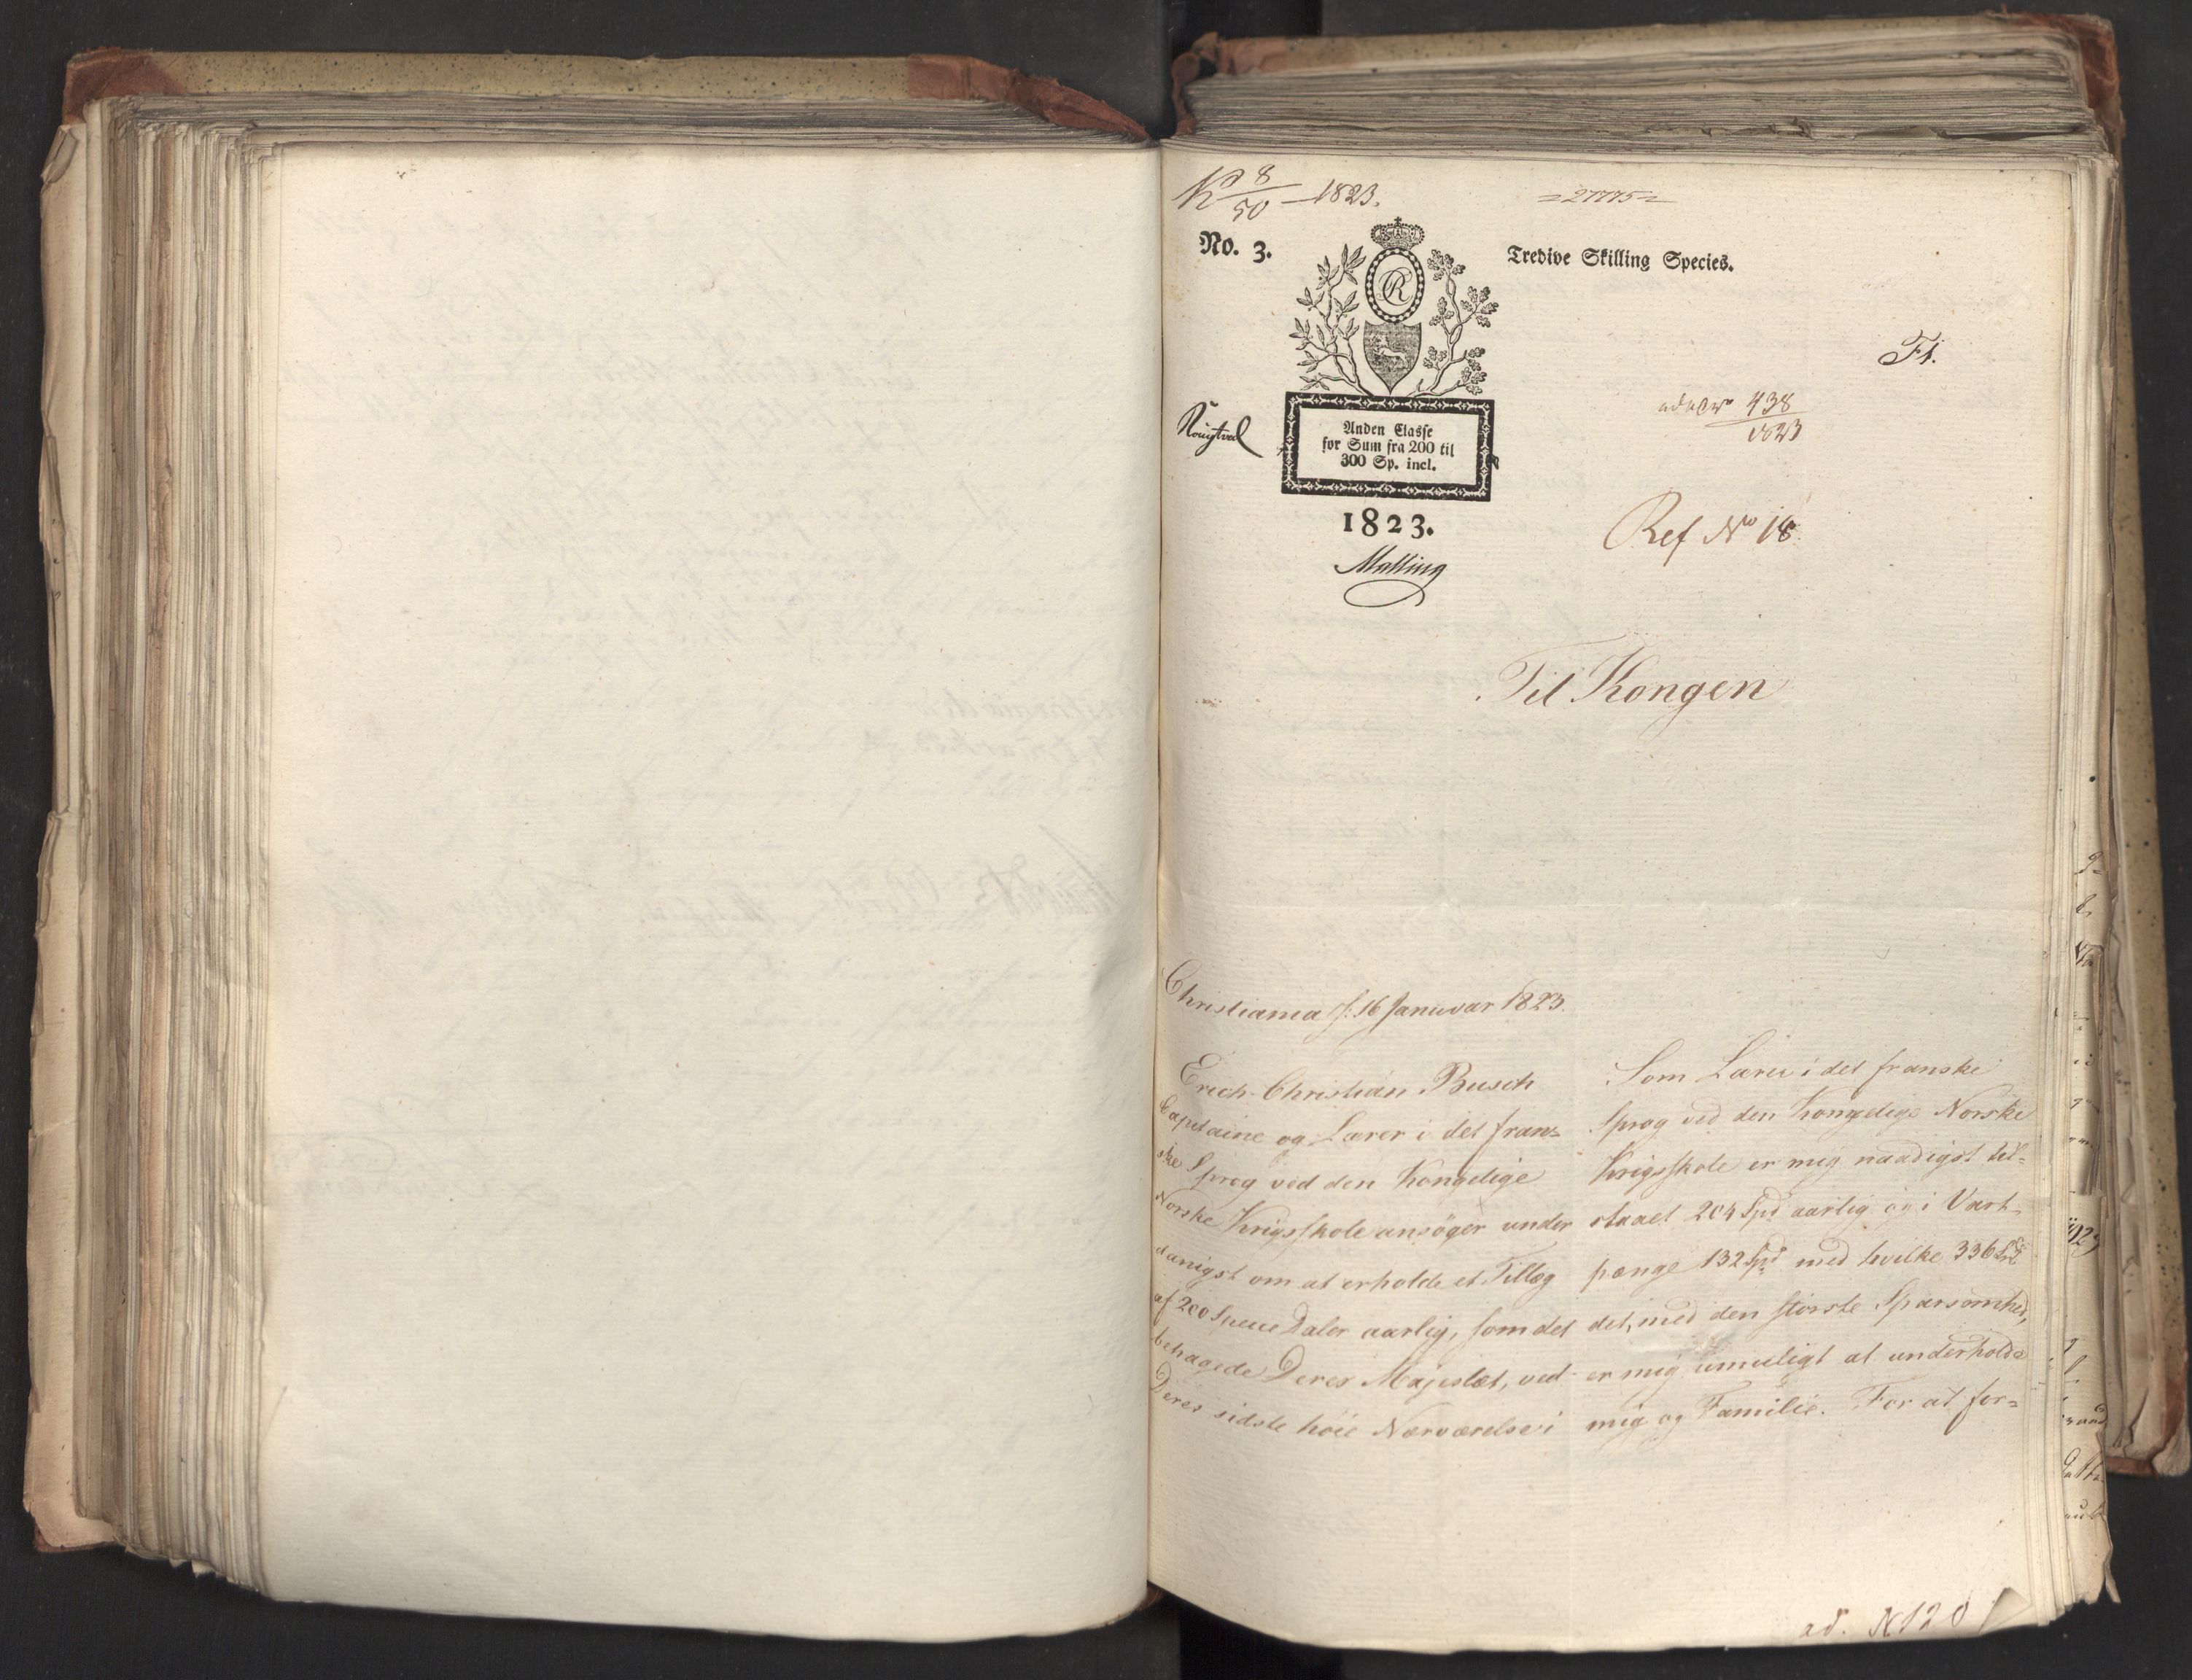 No 8/50 — 1823.
=27775=
No. 3.
Tredive Skilling Species.
CR
F1.
438
1823
Anden Classe
for Sum fra 200 til
300 Sp. incl.
1823.
Malling
Ref No 18.
Til Kongen
Christiania d: 16 Januvar 1823.
Erich Christian Busch
Capitaine og Lærer i det fran=
ske Sprog ved den Kongelige
Norske Krigsskole ansöger under
danigst om at erholde et Tillæg
af 200 Specie Daler aarlig, som det
behagede Deres Majestæt, ved
Deres sidste höie Nærværelse i
Som Lærer i det franske
Sprog ved den Kongelige Norske
Krigsskole er mig naadigst til=
staaet 204 Spd aarlig og i Vart=
penge 132 Spd med hvilke 336 Spd
det, med den störste Sparsomhed,
er mig umuligt at underholde
mig og Familie. For at for=
ad. N 120